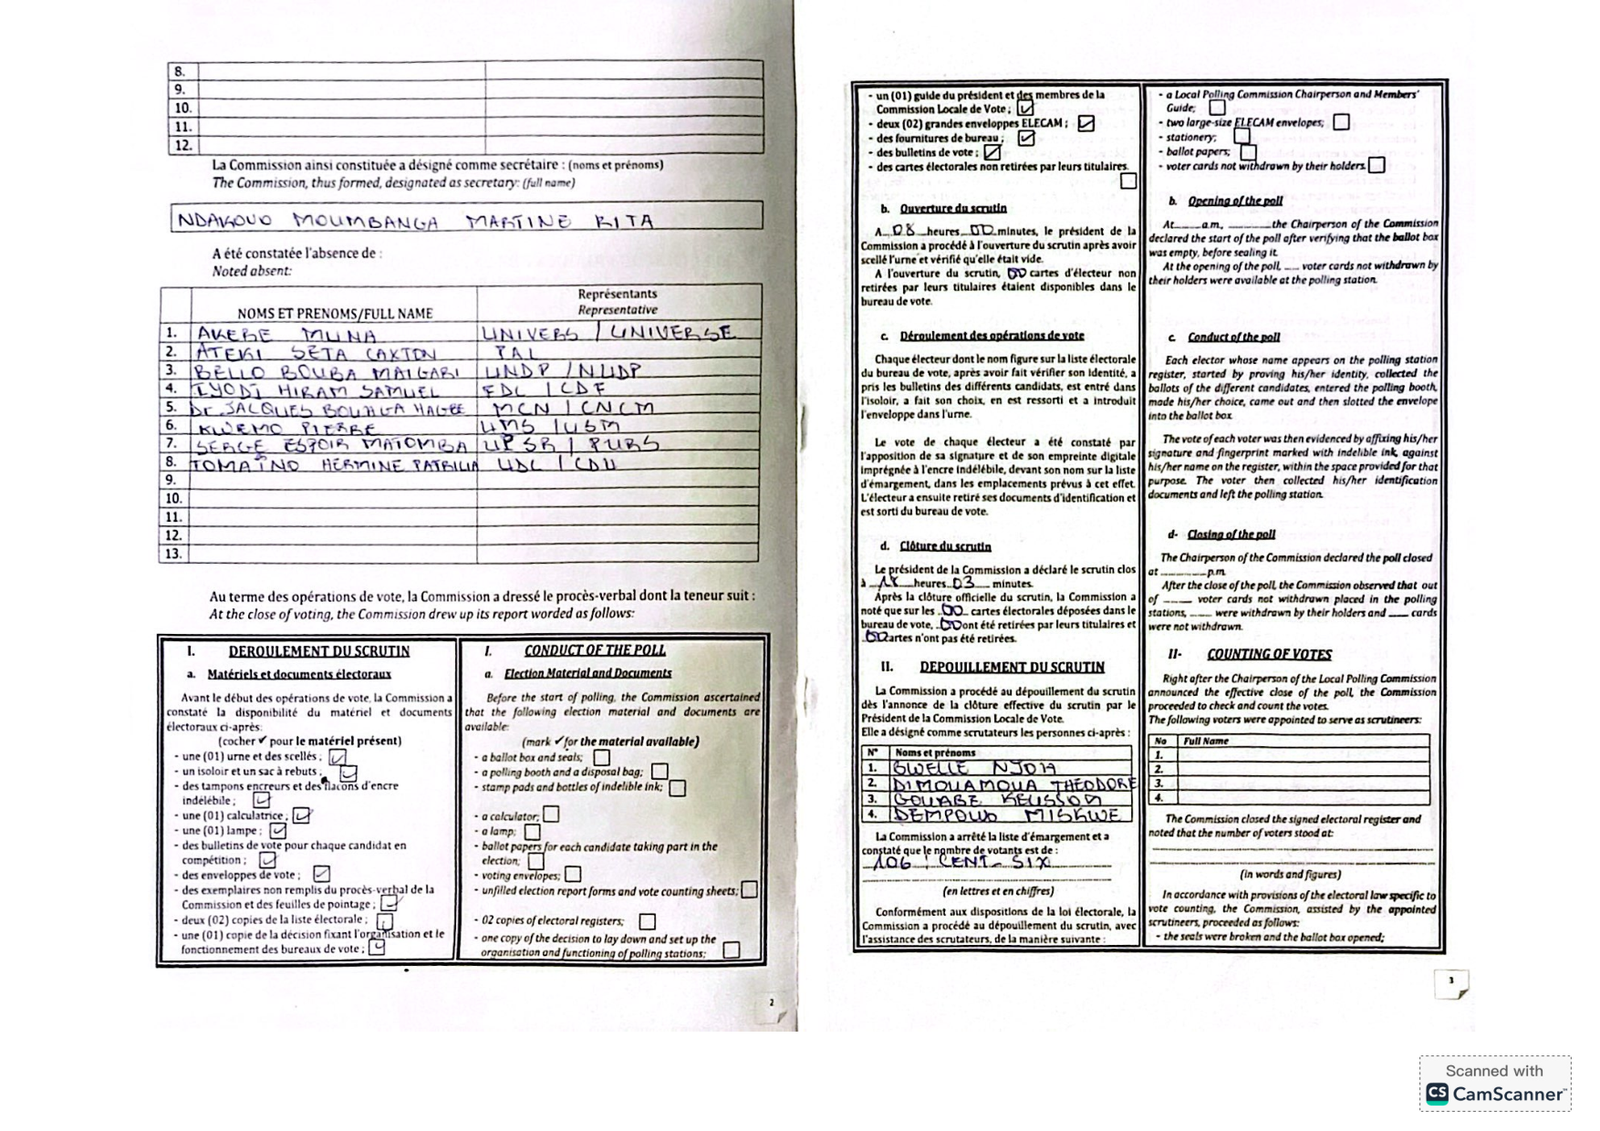 8.
9.
10.
11.
12.
La Commission ainsi constituée a désigné comme secrétaire : (noms et prénoms)
The Commission, thus formed, designated as secretary: (full name)
NDAKOUO MOUMBANGA MARTINE RITA
A été constatée l'absence de :
Noted absent:
NOMS ET PRENOMS/FULL NAME
Représentants
Representative
1. AKERE MUNA UNIVERS / UNIVERSE
2. ATEKI SETA CAXTON PAL
3. BELLO BOUBA MAIGARI UNDP / NUDP
4. IYODI HIRAM SAMUEL FDC / CDF
5. Dr. JACQUES BOUHGA HAGBE MCN / CNCM
6. KWEMO PIERRE UMS / USM
7. SERGE ESPOIR MATOMBA UPSR / PURS
8. TOMAÏNO HERMINE PATRICIA UDC / CDU
9.
10.
11.
12.
13.
Au terme des opérations de vote, la Commission a dressé le procès-verbal dont la teneur suit :
At the close of voting, the Commission drew up its report worded as follows:
I. DEROULEMENT DU SCRUTIN
a. Matériels et documents électoraux
Avant le début des opérations de vote, la Commission a
constaté la disponibilité du matériel et documents
électoraux ci-après:
(cocher ✓ pour le matériel présent)
- une (01) urne et des scellés ;
- un isoloir et un sac à rebuts ;
- des tampons encreurs et des flacons d'encre
indélébile ;
- une (01) calculatrice ;
- une (01) lampe ;
- des bulletins de vote pour chaque candidat en
compétition ;
- des enveloppes de vote ;
- des exemplaires non remplis du procès-verbal de la
Commission et des feuilles de pointage ;
- deux (02) copies de la liste électorale ;
- une (01) copie de la décision fixant l'organisation et le
fonctionnement des bureaux de vote ;
I. CONDUCT OF THE POLL
a. Election Material and Documents
Before the start of polling, the Commission ascertained
that the following election material and documents are
available:
(mark ✓ for the material available)
- a ballot box and seals;
- a polling booth and a disposal bag;
- stamp pads and bottles of indelible ink;
- a calculator;
- a lamp;
- ballot papers for each candidate taking part in the
election;
- voting envelopes;
- unfilled election report forms and vote counting sheets;
- 02 copies of electoral registers;
- one copy of the decision to lay down and set up the
organisation and functioning of polling stations;
2
- un (01) guide du président et des membres de la
Commission Locale de Vote ;
- deux (02) grandes enveloppes ELECAM ;
- des fournitures de bureau ;
- des bulletins de vote ;
- des cartes électorales non retirées par leurs titulaires.
b. Ouverture du scrutin
A 08 heures 00 minutes, le président de la
Commission a procédé à l'ouverture du scrutin après avoir
scellé l'urne et vérifié qu'elle était vide.
A l'ouverture du scrutin, 00 cartes d'électeur non
retirées par leurs titulaires étaient disponibles dans le
bureau de vote.
c. Déroulement des opérations de vote
Chaque électeur dont le nom figure sur la liste électorale
du bureau de vote, après avoir fait vérifier son identité, a
pris les bulletins des différents candidats, est entré dans
l'isoloir, a fait son choix, en est ressorti et a introduit
l'enveloppe dans l'urne.
Le vote de chaque électeur a été constaté par
l'apposition de sa signature et de son empreinte digitale
imprégnée à l'encre indélébile, devant son nom sur la liste
d'émargement, dans les emplacements prévus à cet effet.
L'électeur a ensuite retiré ses documents d'identification et
est sorti du bureau de vote.
d. Clôture du scrutin
Le président de la Commission a déclaré le scrutin clos
à 18 heures 03 minutes.
Après la clôture officielle du scrutin, la Commission a
noté que sur les 00 cartes électorales déposées dans le
bureau de vote, 00 ont été retirées par leurs titulaires et
00 cartes n'ont pas été retirées.
II. DEPOUILLEMENT DU SCRUTIN
La Commission a procédé au dépouillement du scrutin
dès l'annonce de la clôture effective du scrutin par le
Président de la Commission Locale de Vote.
Elle a désigné comme scrutateurs les personnes ci-après :
N° Noms et prénoms
1. GWELLE NJOH
2. DIMOUAMOUA THEODORE
3. GOUABE KEUSSOM
4. DEMPOUO MISKWE
La Commission a arrêté la liste d'émargement et a
constaté que le nombre de votants est de :
106 : CENT-SIX
(en lettres et en chiffres)
Conformément aux dispositions de la loi électorale, la
Commission a procédé au dépouillement du scrutin, avec
l'assistance des scrutateurs, de la manière suivante :
- a Local Polling Commission Chairperson and Members'
Guide;
- two large-size ELECAM envelopes;
- stationery;
- ballot papers;
- voter cards not withdrawn by their holders.
b. Opening of the poll
At a.m., the Chairperson of the Commission
declared the start of the poll after verifying that the ballot box
was empty, before sealing it.
At the opening of the poll, voter cards not withdrawn by
their holders were available at the polling station.
c. Conduct of the poll
Each elector whose name appears on the polling station
register, started by proving his/her identity, collected the
ballots of the different candidates, entered the polling booth,
made his/her choice, came out and then slotted the envelope
into the ballot box.
The vote of each voter was then evidenced by affixing his/her
signature and fingerprint marked with indelible ink, against
his/her name on the register, within the space provided for that
purpose. The voter then collected his/her identification
documents and left the polling station.
d- Closing of the poll
The Chairperson of the Commission declared the poll closed
at p.m.
After the close of the poll, the Commission observed that out
of voter cards not withdrawn placed in the polling
stations, were withdrawn by their holders and cards
were not withdrawn.
II- COUNTING OF VOTES
Right after the Chairperson of the Local Polling Commission
announced the effective close of the poll, the Commission
proceeded to check and count the votes.
The following voters were appointed to serve as scrutineers:
No Full Name
1.
2.
3.
4.
The Commission closed the signed electoral register and
noted that the number of voters stood at:
(in words and figures)
In accordance with provisions of the electoral law specific to
vote counting, the Commission, assisted by the appointed
scrutineers, proceeded as follows:
- the seals were broken and the ballot box opened;
3
Scanned with
CS CamScanner